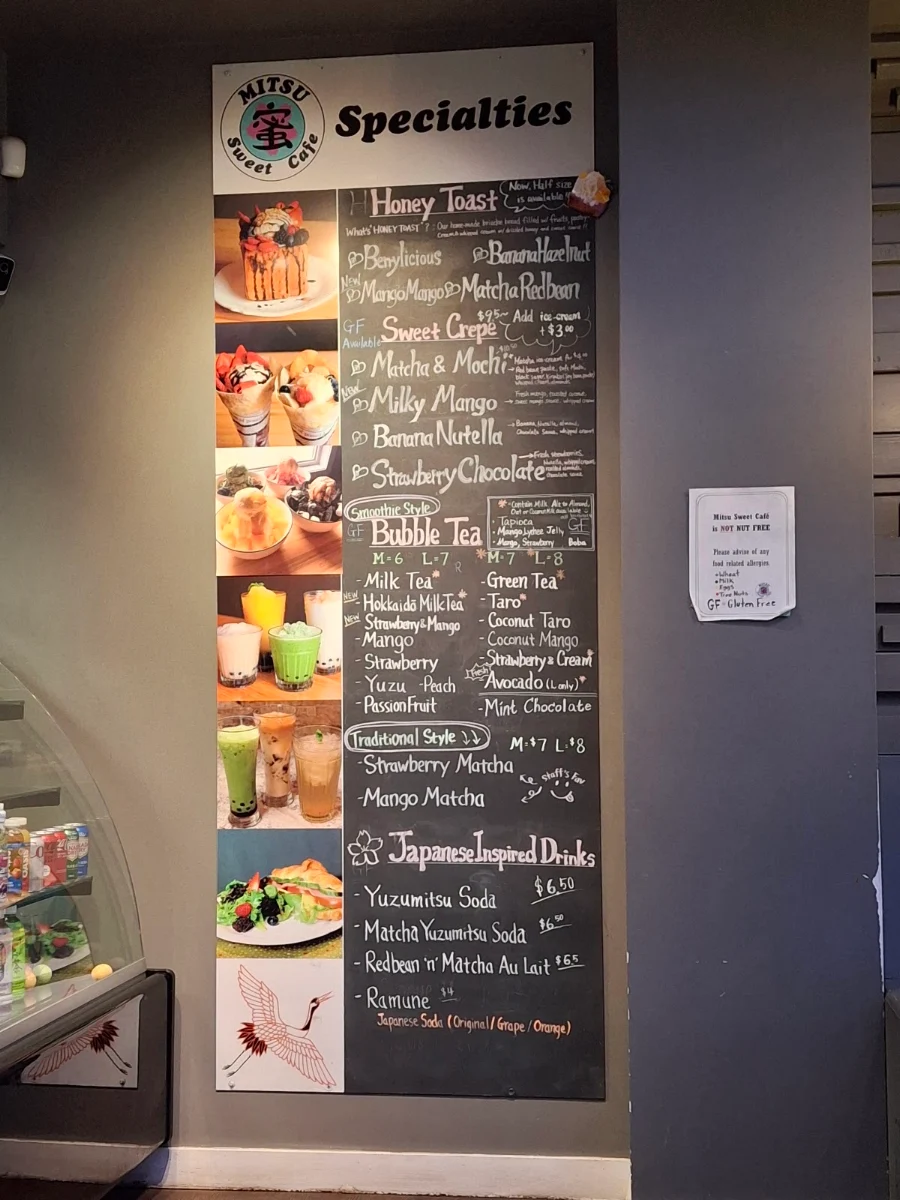 MITSU
蜜
Sweet Cafe
Specialties
Honey Toast
Now, Half size
is available!!
What's "HONEY TOAST"? : Our home-made brioche bread filled w/ fruits, pastry
Berrylicious
Banana Hazelnut
NEW
Mango Mango
Matcha Redbean
GF
Available
Sweet Crepe
$9.5~
Add ice-cream
+ $3.00
Matcha & Mochi
NEW
Milky Mango
Fresh mango, toasted coconut,
sweet mango sauce, whipped cream
Banana Nutella
→ Banana, Nutella, almond,
Chocolate Sauce, whipped cream
Strawberry Chocolate
→ Fresh strawberries,
Nutella, whipped cream,
roasted almonds,
chocolate sauce
Smoothie Style
GF
Bubble Tea
*Contain Milk. Alt to Almond,
Oat or Coconut Milk available
- Tapioca
- Mango, Lychee Jelly
- Mango, Strawberry Boba
GF
M=6 L=7
*M=7 *L=8
- Milk Tea*
- Green Tea*
NEW
- Hokkaido Milk Tea*
- Taro*
NEW
- Strawberry & Mango
- Coconut Taro
- Mango
- Coconut Mango
- Strawberry
- Strawberry & Cream*
- Yuzu - Peach
Fresh
Avocado (L only)*
- Passion Fruit
- Mint Chocolate
Traditional Style ↓↓
M=$7 L=$8
- Strawberry Matcha
Staff's Fav
- Mango Matcha
Japanese Inspired Drinks
- Yuzumitsu Soda $6.50
- Matcha Yuzumitsu Soda $6.50
- Redbean 'n' Matcha Au Lait $6.5
- Ramune $4
Japanese Soda (Original / Grape / Orange)
Mitsu Sweet Café
is NOT NUT FREE
Please advise of any
food related allergies
• Wheat
• Milk
Eggs
• Tree Nuts
GF = Gluten Free